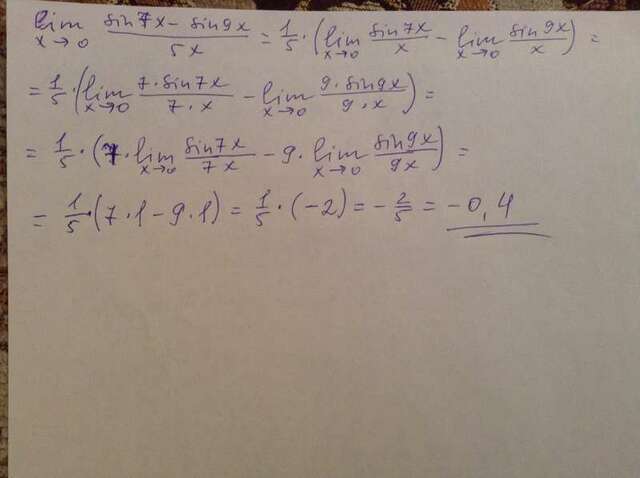 lim x→0 (sin7x - sin9x)/(5x) = 1/5 · (lim x→0 sin7x/x - lim x→0 sin9x/x) =
= 1/5 · (lim x→0 (7·sin7x)/(7·x) - lim x→0 (9·sin9x)/(9·x)) =
= 1/5 · (7· lim x→0 sin7x/7x - 9· lim x→0 sin9x/9x) =
= 1/5 · (7·1 - 9·1) = 1/5 · (-2) = -2/5 = -0,4